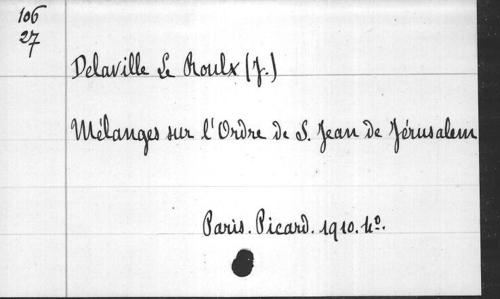 106
27
Delaville Le Roulx (J.)
Mélanges sur l'Ordre de S. Jean de Jérusalem
Paris. Picard. 1910. 4º.